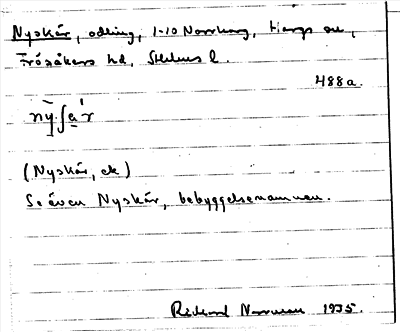 Nyskär, odling, 1-10 Norrskog, Hargs sn,
Frösåkers hd, Sthlms l.
488a.
nỳ.ʃa̱ʹr
(Nyskär, ek)
Se även Nyskär, bebyggelsenamnen.
Rickard 1935.